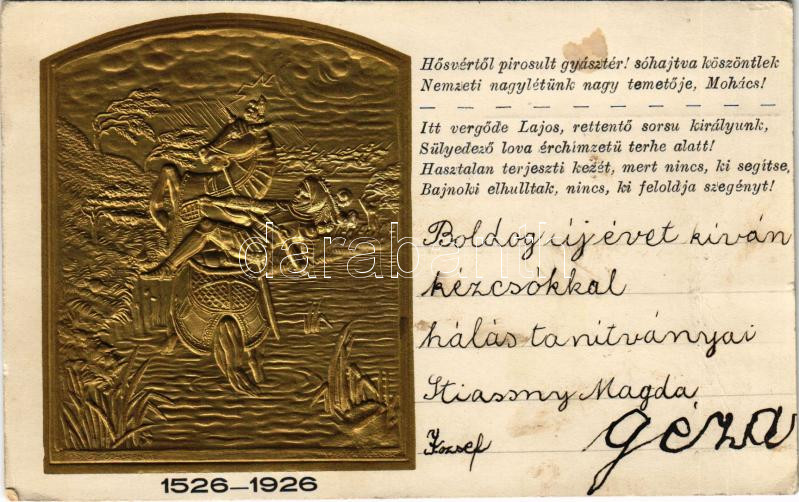 Hősvértől pirosult gyásztér! sóhajtva köszöntlek
Nemzeti nagylétünk nagy temetője, Mohács!
Itt vergőde Lajos, rettentő sorsu királyunk,
Sülyedező lova érchímzetü terhe alatt!
Hasztalan terjeszti kezét, mert nincs, ki segítse,
Bajnoki elhulltak, nincs, ki feloldja szegényt!
Boldog új évet kíván
kézcsókkal
hálás tanítványai
Stiassny Magda
József Géza
1526–1926
darabanth